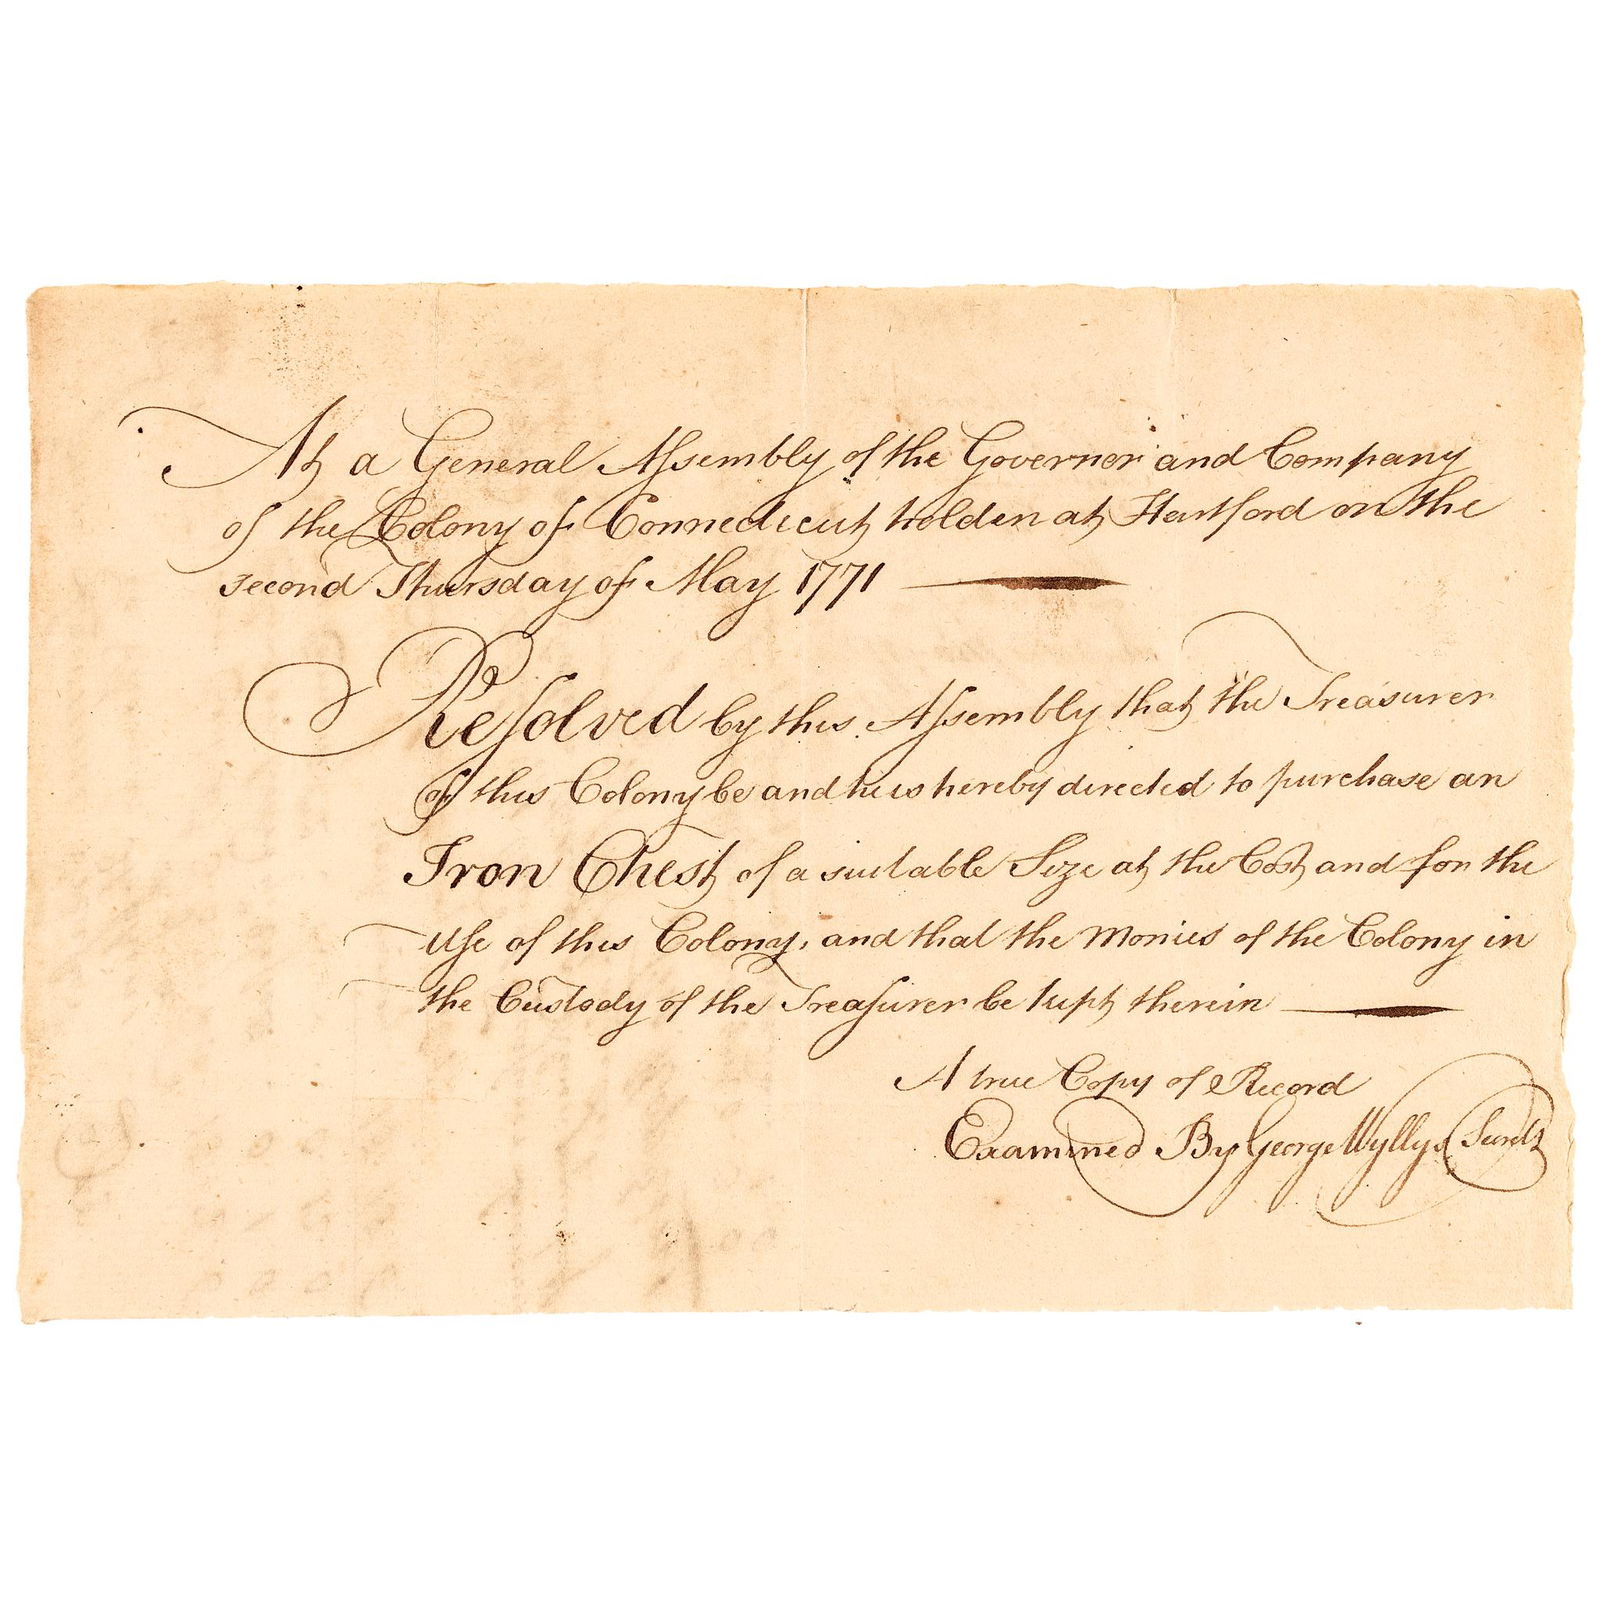 At a General Assembly of the Governor and Company
of the Colony of Connecticut holden at Hartford on the
second Thursday of May 1771
Resolved by this Assembly that the Treasurer
of this Colony be and he is hereby directed to purchase an
Iron Chest of a suitable Size at the Cost and for the
Use of this Colony, and that the Monies of the Colony in
the Custody of the Treasurer be kept therein
A true Copy of Record
Examined By George Wyllys Secretʸ